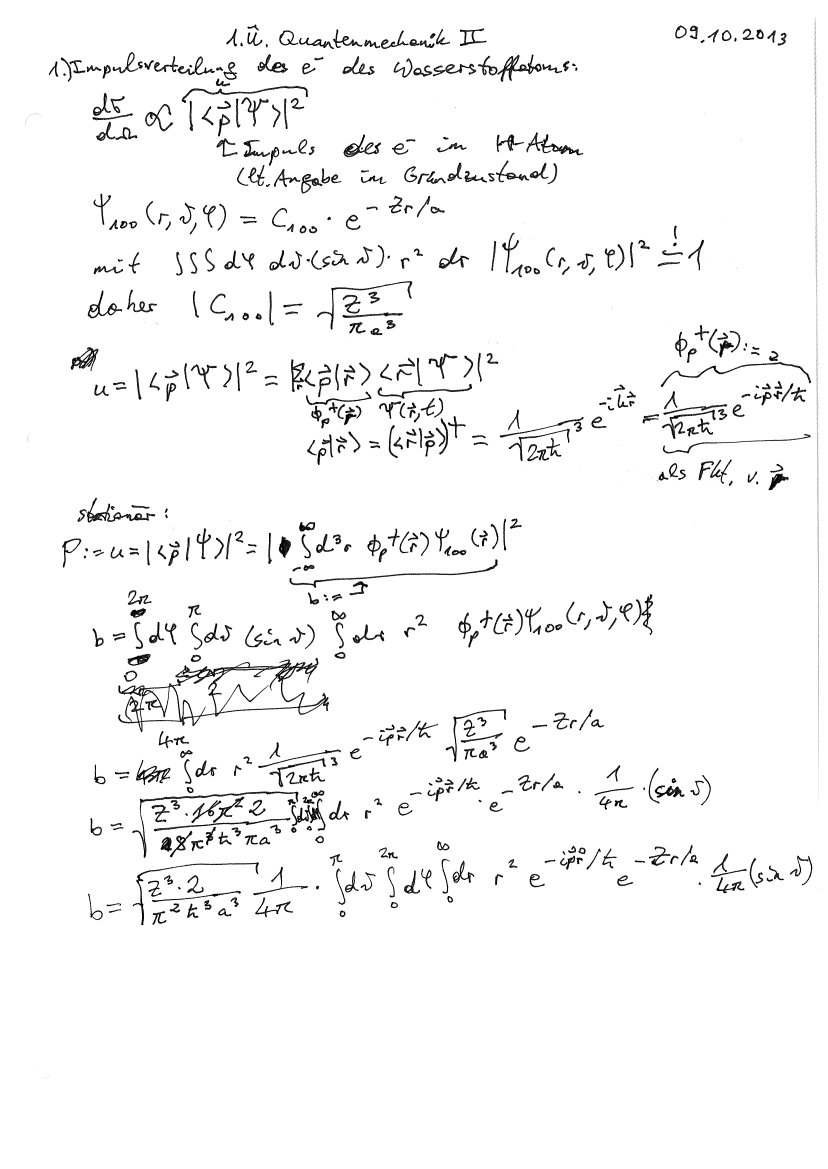 1.Ü. Quantenmechanik II 09.10.2013
1.) Impulsverteilung des e⁻ des Wasserstoffatoms:
u
dσ/dΩ ∝ |<p⃗|Ψ>|²
↑ Impuls des e⁻ im H-Atom
(lt. Angabe im Grundzustand)
Ψ₁₀₀(r,ϑ,φ) = C₁₀₀ · e^(-Zr/a)
mit ∫∫∫ dφ dϑ·(sin ϑ)· r² dr |Ψ₁₀₀(r,ϑ,φ)|² =! 1
daher |C₁₀₀| = √(Z³/(πa³))
u = |<p⃗|Ψ>|² = |<p⃗|r⃗> <r⃗|Ψ>|² ϕₚ⁺(p⃗) :=
ϕₚ⁺(p⃗) Ψ(r⃗,t)
<p⃗|r⃗> = (<r⃗|p⃗>)⁺ = 1/√(2πħ)³ e^(-ik⃗r⃗) = 1/√(2πħ)³ e^(-ip⃗r⃗/ħ)
als Fkt. v. p⃗
stationär:
P := u = |<p⃗|Ψ>|² = | ∫_(-∞)^∞ d³r ϕₚ⁺(r⃗) Ψ₁₀₀(r⃗)|²
b :=
b = ∫₀^(2π) dφ ∫₀^π dϑ (sin ϑ) ∫₀^∞ dr r² ϕₚ⁺(r⃗)Ψ₁₀₀(r,ϑ,φ)
2π 2
4π
b = 4π ∫₀^∞ dr r² 1/√(2πħ)³ e^(-ip⃗r⃗/ħ) √(Z³/(πa³)) e^(-Zr/a)
b = √(Z³·16π²2/(8π³ħ³πa³)) ∫₀^π dϑ ∫₀^(2π) dφ ∫₀^∞ dr r² e^(-ip⃗r⃗/ħ) · e^(-Zr/a) · 1/4π · (sin ϑ)
b = √(Z³·2/(π²ħ³a³)) 1/4π · ∫₀^π dϑ ∫₀^(2π) dφ ∫₀^∞ dr r² e^(-ip⃗r⃗/ħ) e^(-Zr/a) · 1/4π (sin ϑ)